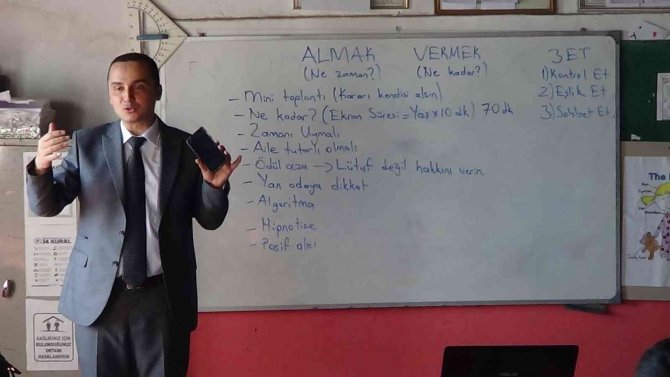 ALMAK VERMEK 3 ET
(Ne zaman?) (Ne kadar?) 1) Kontrol Et
- Mini toplantı (Kararı kendisi alsın) 2) Eşlik Et
- Ne kadar? (Ekran Süresi = Yaş x 10 dk) 70 dk 3) Sohbet Et
- Zamanı Uymalı
- Aile tutarlı olmalı
- Ödül ceza → Lütuf değil hakkını verin.
- Yan odaya dikkat
- Algoritma
- Hipnotize
- Pasif alıcı
14 KURAL
SAĞLIĞINIZ İÇİN
BULUNDUĞUNUZ
ORTAMI
HAVALANDIRIN
The